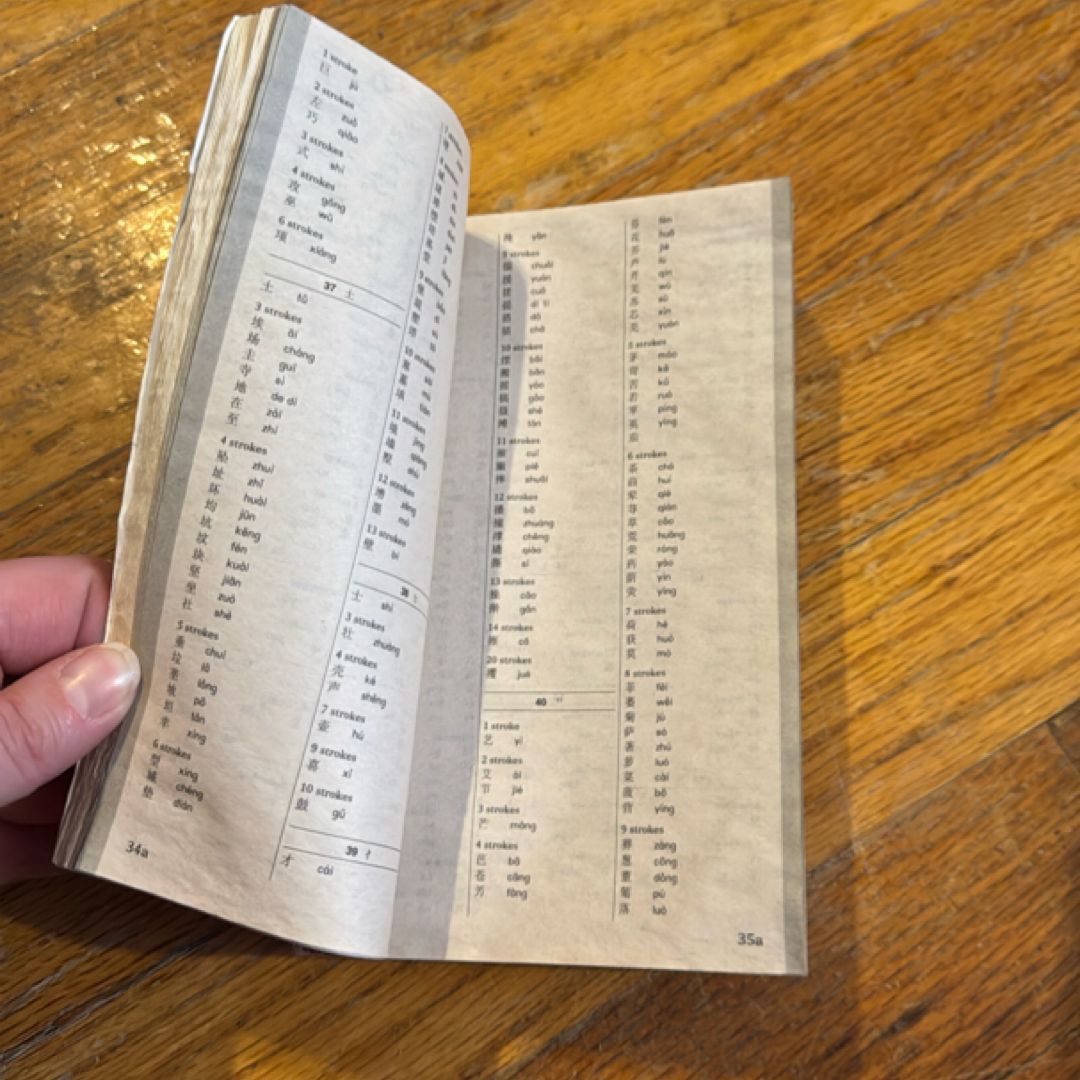 1 stroke
巨 jù
2 strokes
左 zuǒ
巧 qiǎo
3 strokes
式 shì
4 strokes
攻 gōng
巫 wū
6 strokes
项 xiàng
37 土
土 tǔ
3 strokes
埃 āi
场 chǎng
圭 guī
寺 sì
地 de dì
在 zài
至 zhì
4 strokes
坠 zhuì
址 zhǐ
坏 huài
均 jūn
坑 kēng
坟 fén
块 kuài
坚 jiān
坐 zuò
社 shè
5 strokes
垂 chuí
垃 lā
垄 lǒng
坡 pō
坦 tǎn
幸 xìng
6 strokes
型 xíng
城 chéng
垫 diàn
34a
9 strokes
10 strokes
墓 mù
填 tián
11 strokes
境 jìng
墙 qiáng
墅 shù
12 strokes
增 zēng
墨 mò
13 strokes
壁 bì
38 士
士 shì
3 strokes
壮 zhuàng
4 strokes
壳 ké
声 shēng
7 strokes
壶 hú
9 strokes
喜 xǐ
10 strokes
鼓 gǔ
39 扌
才 cái
9 strokes
揣 chuāi
援 yuán
搓 cuō
搭 dā
插 chā
10 strokes
摆 bǎi
搬 bān
摇 yáo
搞 gǎo
摄 shè
摊 tān
11 strokes
摧 cuī
撇 piě
摔 shuāi
12 strokes
播 bō
撞 zhuàng
撑 chēng
撕 sī
13 strokes
操 cāo
擀 gǎn
14 strokes
擦 cā
20 strokes
攫 jué
40 艹
1 stroke
艺 yì
2 strokes
艾 ài
节 jié
3 strokes
芒 máng
4 strokes
芭 bā
苍 cāng
芳 fāng
芬 fēn
花 huā
芥 jiè
芦 lú
芹 qín
芜 wú
苏 sū
芯 xīn
芫 yuán
5 strokes
茅 máo
苛 kē
苦 kǔ
若 ruò
苹 píng
英 yīng
茄
6 strokes
茶 chá
茴 huí
荤
荐
草 cǎo
荒 huāng
荣 róng
药 yào
荫 yìn
荧 yíng
7 strokes
荷 hé
获 huò
莫 mò
8 strokes
菲 fēi
萎 wěi
菊 jú
萨 sà
著 zhù
萝 luó
菜 cài
菠 bō
营 yíng
9 strokes
葬 zàng
葱 cōng
董 dǒng
葡 pú
落 luò
35a